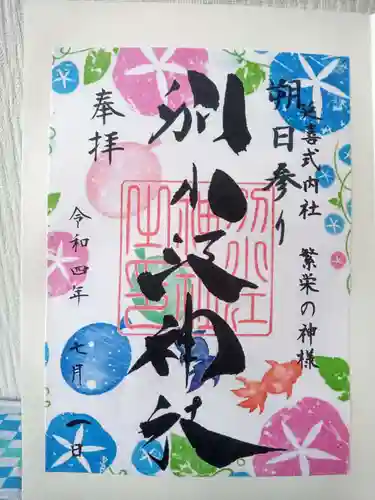 延喜式内社 繁栄の神様
朔日参り
別小江神社
奉拝
令和四年 七月 一日
別小江神社之印